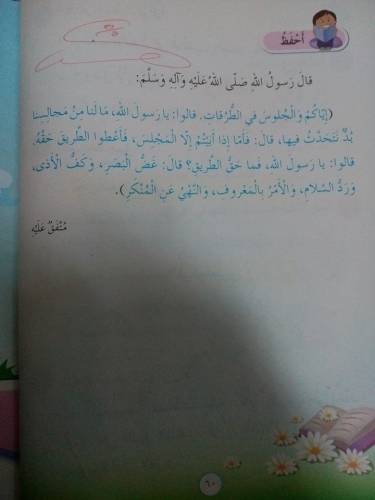 أَحْفَظُ
قالَ رَسولُ اللهِ صَلّى اللهُ عَلَيْهِ وَآلِهِ وَسَلَّمَ:
(إِيّاكُمْ وَالْجُلوسَ في الطُّرُقاتِ. قالوا: يا رَسولَ اللهِ، مَا لَنا مِنْ مَجالِسِنا
بُدٌّ نَتَحَدَّثُ فيها، قالَ: فَأَمّا إِذا أَبَيْتُمْ إِلّا الْمَجْلِسَ، فَأَعْطوا الطَّريقَ حَقَّهُ.
قالوا: يا رَسولَ اللهِ، فَما حَقُّ الطَّريقِ؟ قالَ: غَضُّ الْبَصَرِ، وَكَفُّ الْأَذى،
وَرَدُّ السَّلامِ، وَالْأَمْرُ بِالْمَعْروفِ، وَالنَّهْيُ عَنِ الْمُنْكَرِ).
مُتَّفَقٌ عَلَيْهِ
٦٠